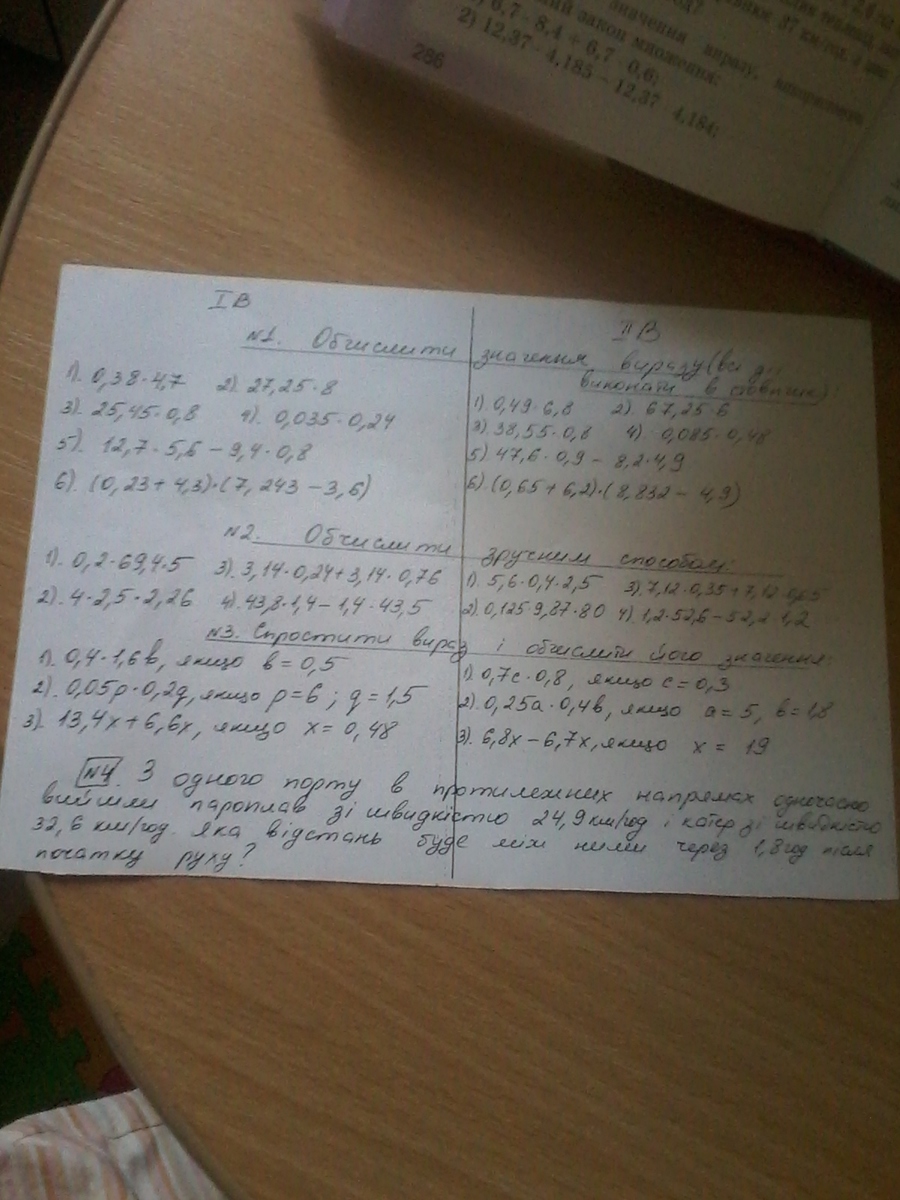 значення виразу,
6,7 · 8,4 + 6,7 0,6;
закон множення:
2) 12,37 · 4,185 − 12,37 4,184;
286
I В
II В
№1. Обчислити значення виразу (ви
виконати в стовпчик):
1). 0,38·4,7 2) 27,25·8
3). 25,45·0,8 4). 0,035·0,24
5). 12,7·5,6 − 9,4·0,8
6). (0,23+4,3)·(7,243−3,6)
1). 0,49·6,8 2). 67,25·6
3). 38,55·0,8 4). 0,085·0,48
5) 47,6·0,9 − 8,2·4,9
6). (0,65+6,2)·(8,832−4,9)
№2. Обчислити зручним способом:
1). 0,2·69,4·5 3). 3,14·0,24+3,14·0,76
2). 4·2,5·2,26 4). 43,8·1,4−1,4·43,5
1). 5,6·0,4·2,5 3). 7,12·0,35+7,12·0,65
2). 0,125·9,87·80 4). 1,2·52,6−52,2·1,2
№3. Спростити вираз і обчислити його значення:
1). 0,4·1,6в, якщо в=0,5
2). 0,05р·0,2q, якщо р=6; q=1,5
3). 13,4х+6,6х, якщо х=0,48
1). 0,7с·0,8, якщо с=0,3
2). 0,25а·0,4в, якщо а=5, в=1,8
3). 6,8х−6,7х, якщо х=19
№4. З одного порту в протилежних напрямах одночасно
вийшли пароплав зі швидкістю 24,9 км/год і катер зі швидкістю
32,6 км/год. яка відстань буде між ними через 1,8 год після
початку руху?